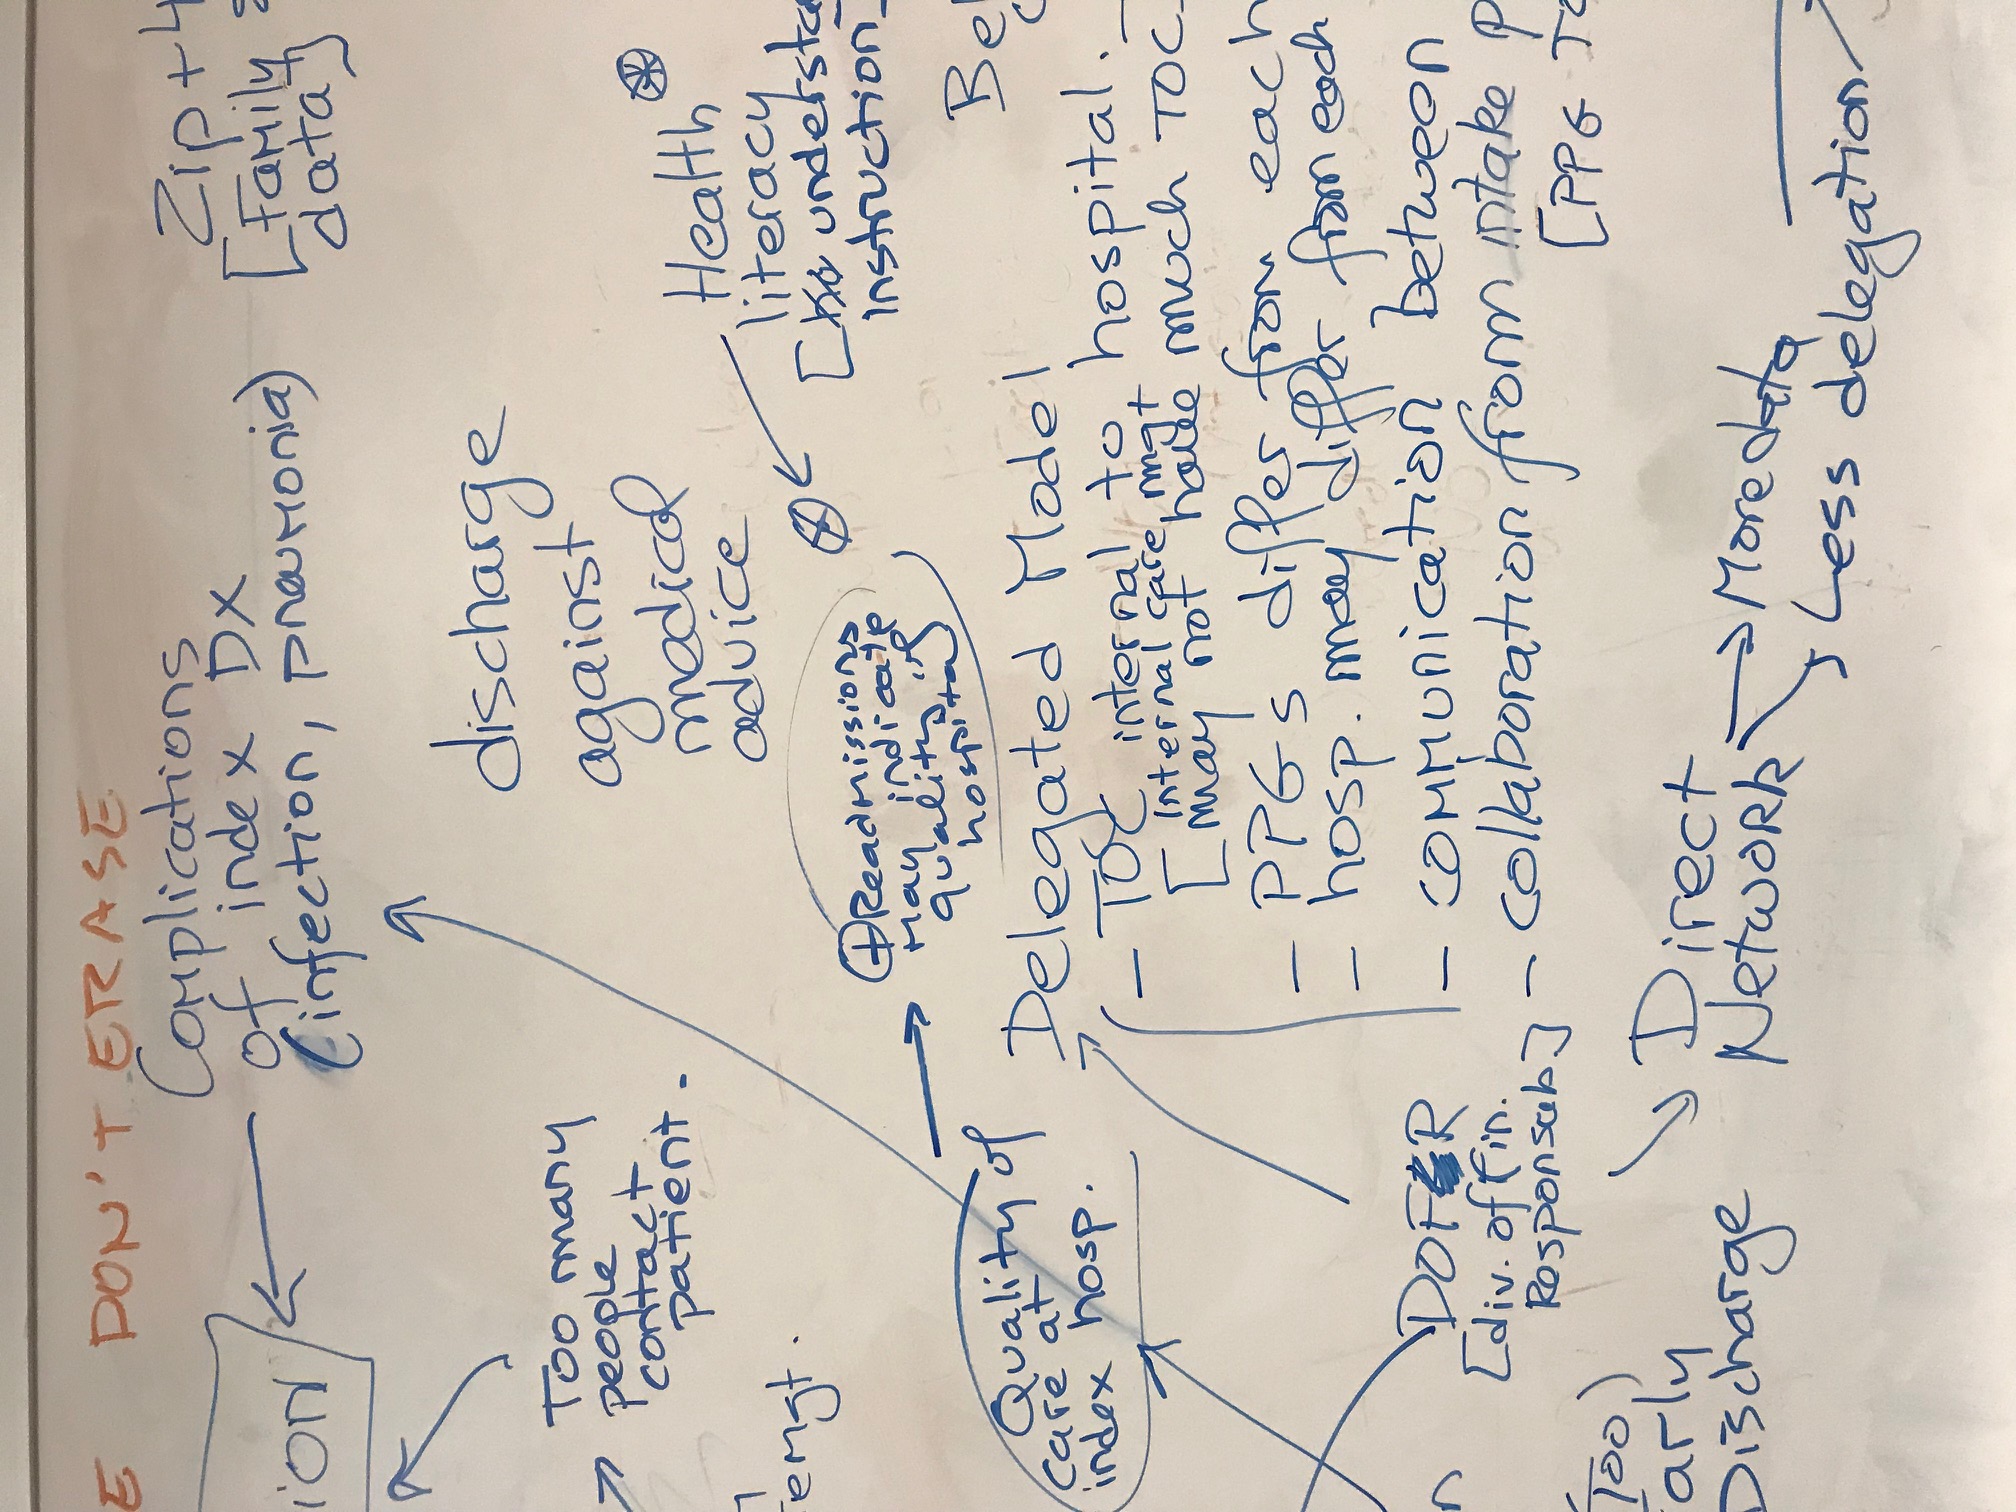 E DON'T ERASE
Complications
of index DX
(infection, pneumonia)
Zip+4
[Family
data]
ion
discharge
against
medical
advice
Too many
people
contact
patient.
emgt.
Health
literacy
understa
instruction
Readmissions
may indicate
quality of
hospital
Quality of
care at
index hosp.
Delegated Model
- TOC internal to hospital.
internal care mngt
[may not have much TOC
- PPGs differ from each
- hosp. may differ from each
- communication between
- collaboration from intake p
[PPG TO
DOFR
[div. of fin.
Responsab.]
(Too)
Early
Discharge
Direct
Network
More data
Less delegation